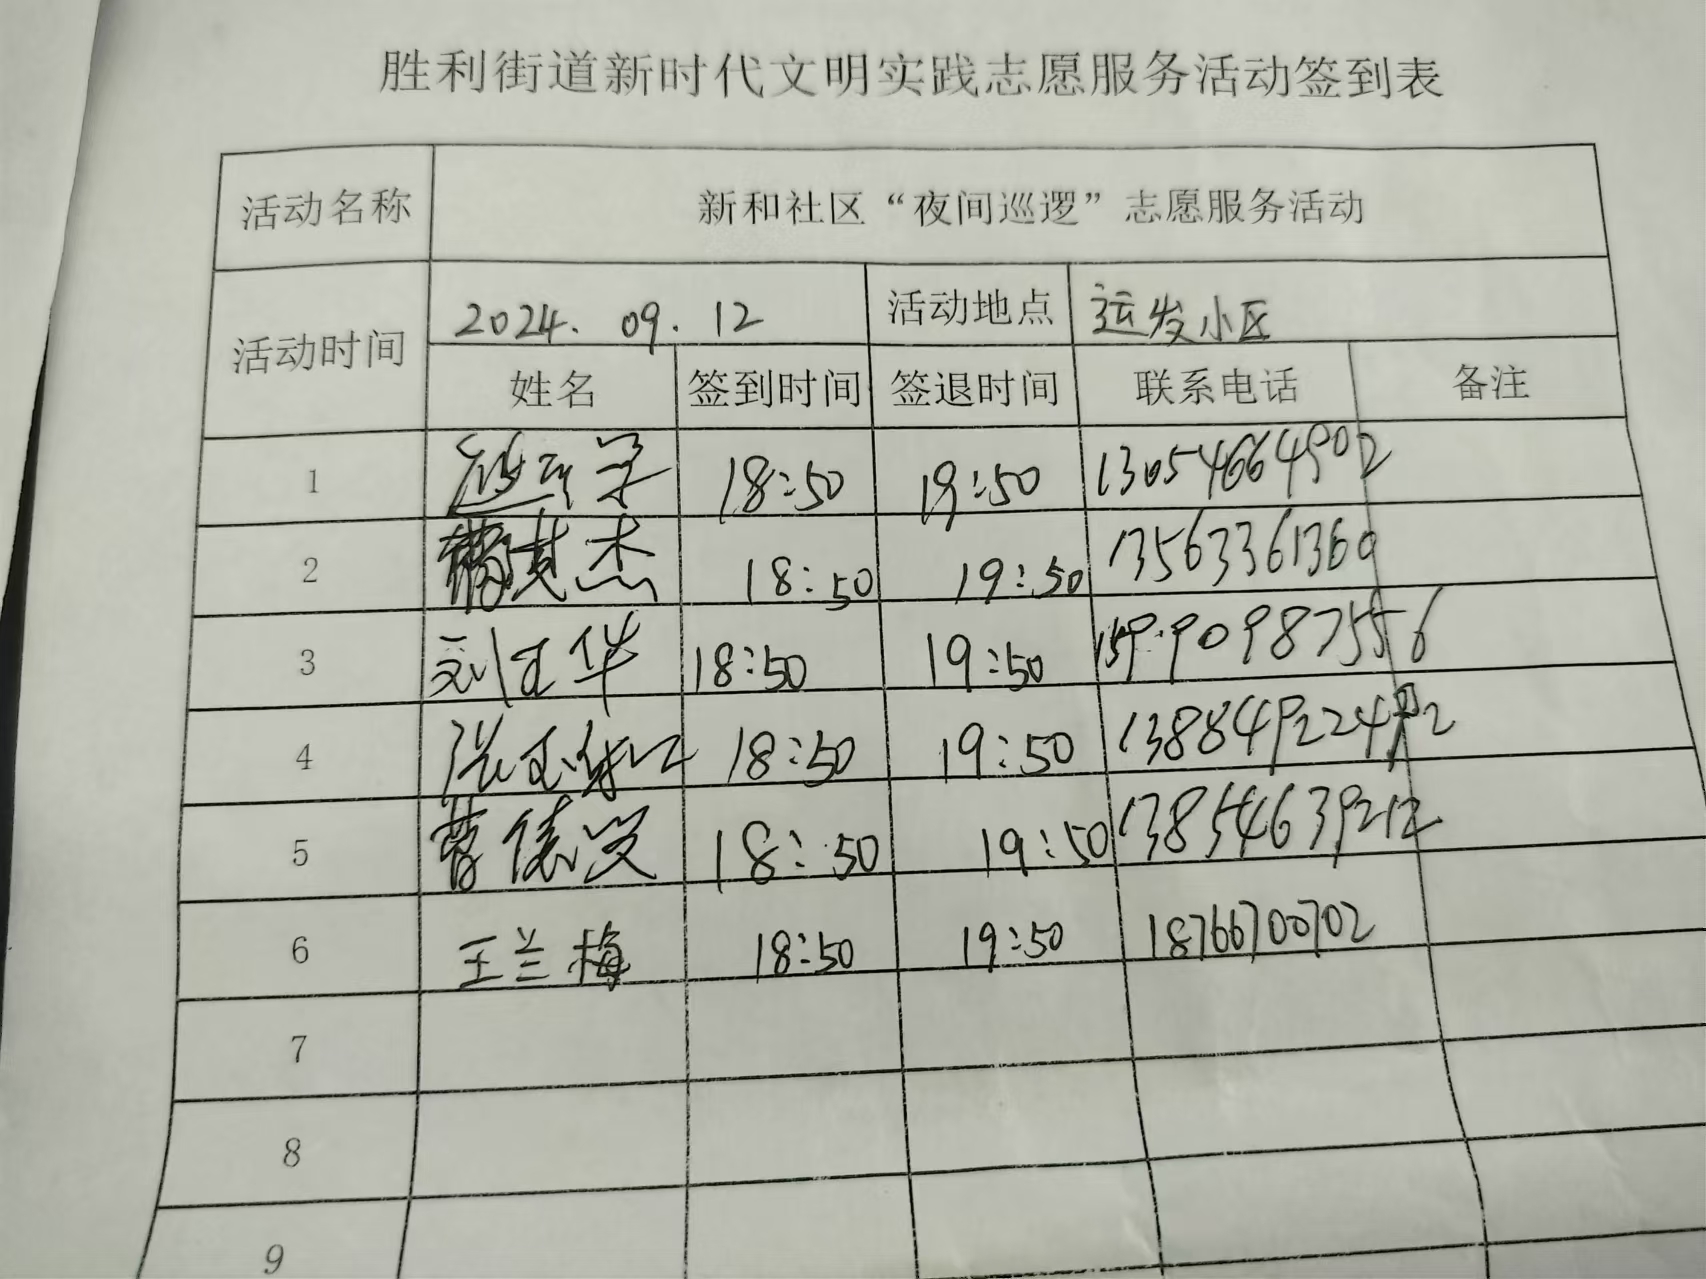 胜利街道新时代文明实践志愿服务活动签到表
活动名称 新和社区“夜间巡逻”志愿服务活动
活动时间 2024.09.12 活动地点 运发小区
姓名 签到时间 签退时间 联系电话 备注
1 18:50 19:50 13054664902
2 杰 18:50 19:50 13563361360
3 刘正华 18:50 19:50 15990987556
4 张 18:50 19:50
5 曹德 18:50 19:50 13854639212
6 王兰梅 18:50 19:50 18766700702
7
8
9